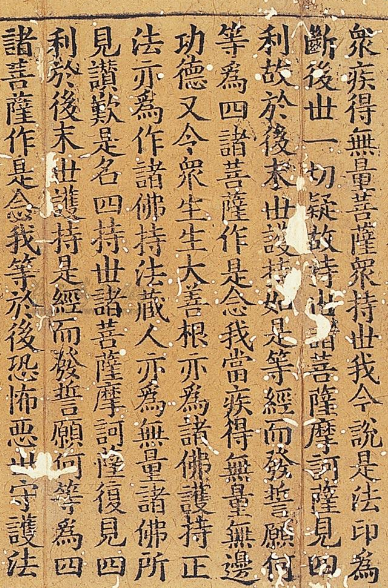 衆疾得無量菩薩衆持世我今說是法印為
斷後世一切疑故持世諸菩薩摩訶薩見四
利故於後末世護持如是等經而發誓願何
等為四諸菩薩作是念我當疾得無量無邊
功德又令衆生生大善根亦為諸佛護持正
法亦為作諸佛持法藏人亦為無量諸佛所
見讃歎是名四持世諸菩薩摩訶薩復見四
利於後末世護持是經而發誓願何等為四
諸菩薩作是念我等於後恐怖悪世守護法